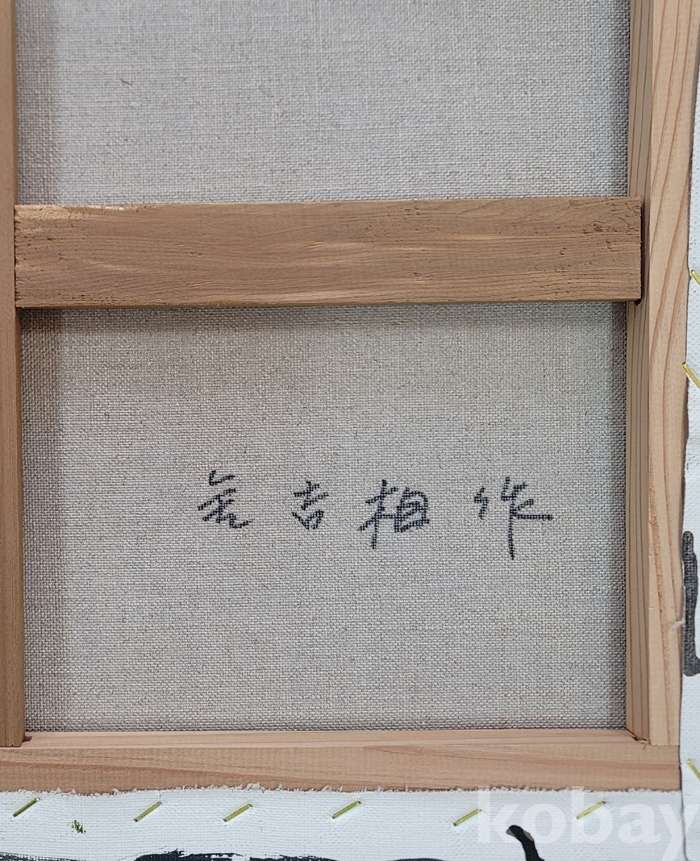 金 吉 相 作
kobay